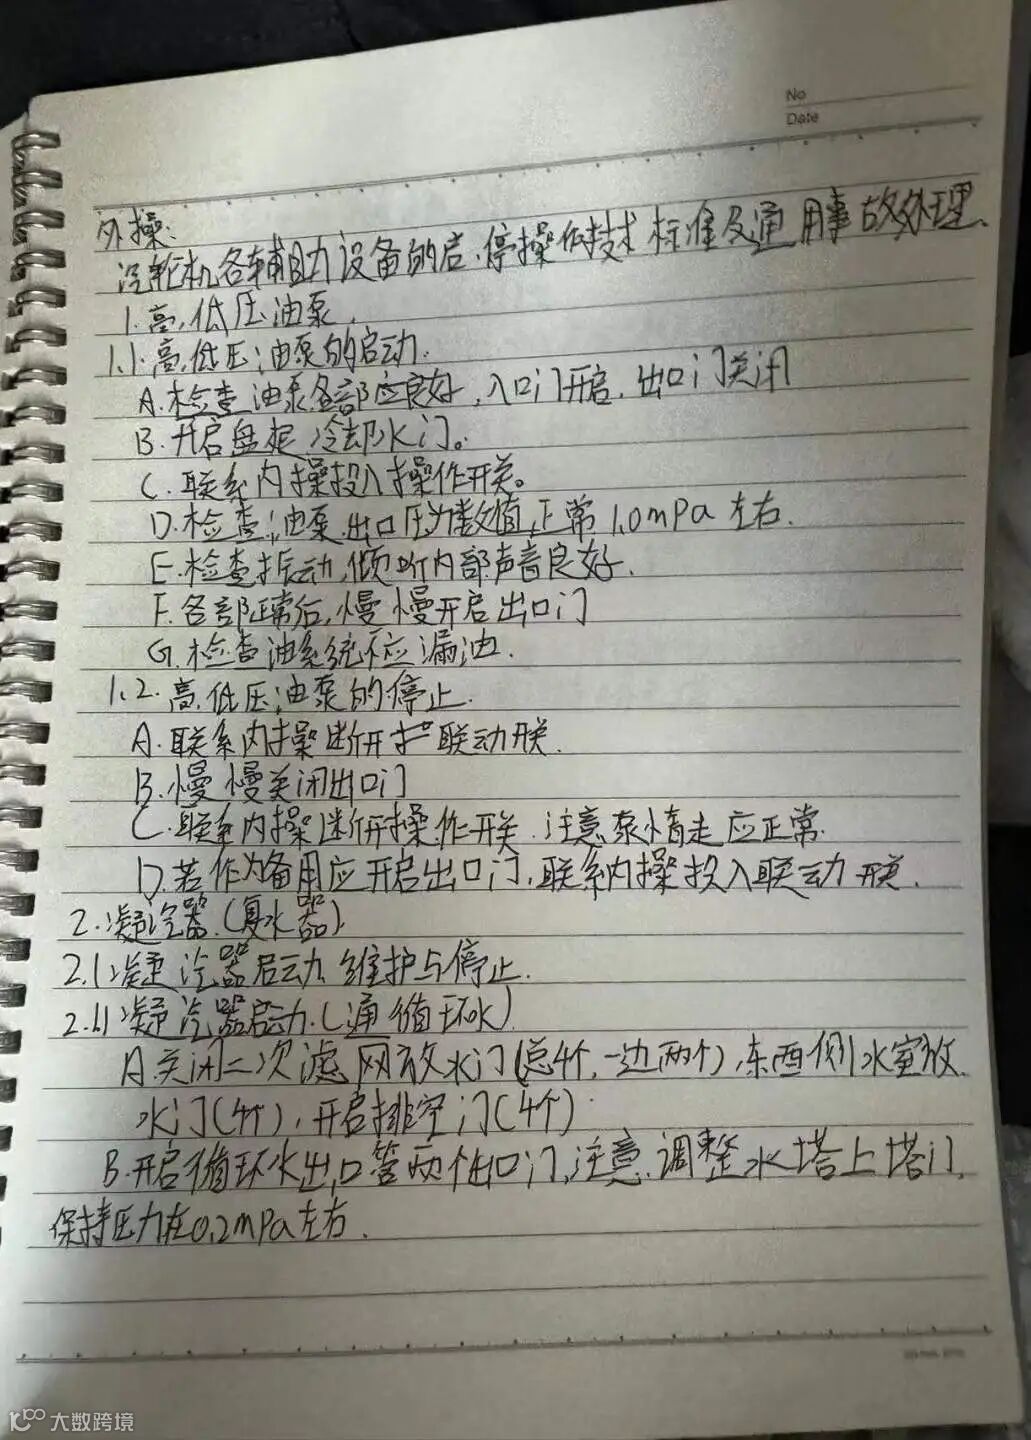 No
Date
外操:
汽轮机各辅助设备的启、停操作技术标准及通用事故处理、
1.高、低压油泵.
1.1.高、低压油泵的启动.
A.检查油泵各部应良好，入口门开启，出口门关闭
B.开启盘根冷却水门。
C.联系内操投入操作开关。
D.检查油泵出口压力数值，正常1.0mPa左右.
E.检查振动，倾听内部声音良好.
F.各部正常后，慢慢开启出口门
G.检查油系统不应漏油.
1.2.高、低压油泵的停止.
A.联系内操断开 联动开关.
B.慢慢关闭出口门
C.联系内操断开操作开关.注意泵惰走应正常.
D.若作为备用应开启出口门，联系内操投入联动开关.
2.凝汽器.(复水器).
2.1凝汽器启动、维护与停止.
2.1.1凝汽器启动.(通循环水)
A.关闭二次滤网放水门(总4个，一边两个)，东西侧水室放
水门(4个)，开启排空门(4个)
B.开启循环水出口管两个出口门，注意调整水塔上塔门，
保持压力在0.2mPa左右.
大数跨境